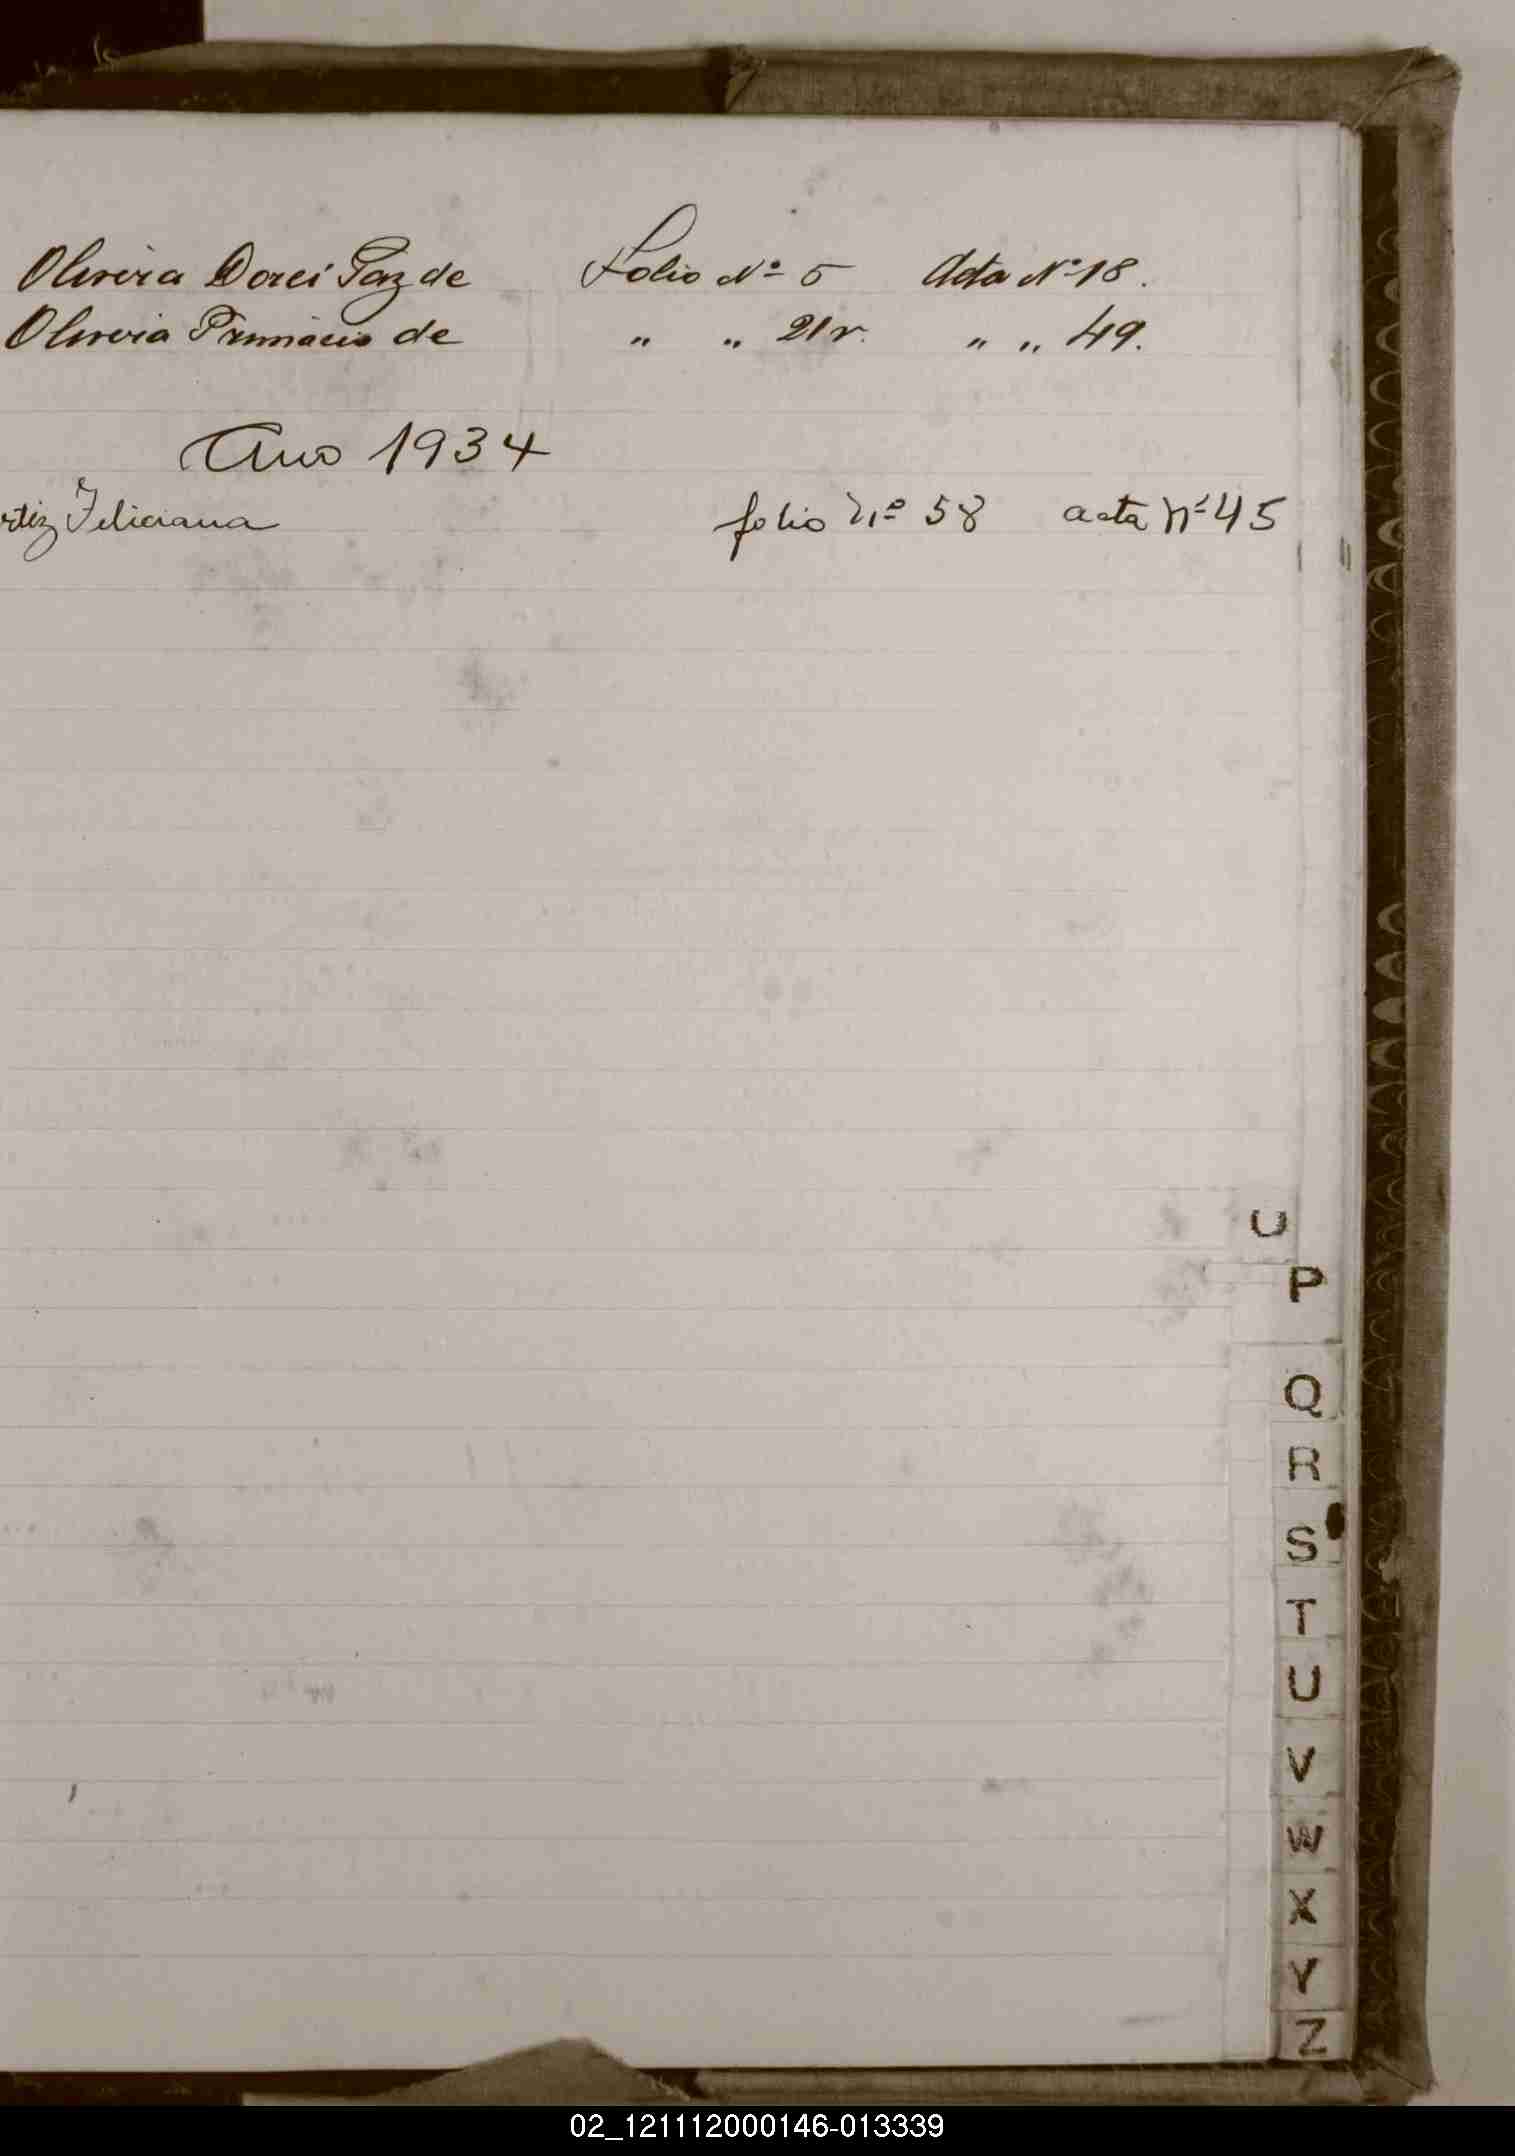 Oliveira Dorci Paz de Folio Nº 5 Acta Nº 18.
Oliveira Primacio de " " 21v. " " 49.
Ano 1934
rtiz Feliciana folio nº 58 acta nº 45
O
P
Q
R
S
T
U
V
W
X
Y
Z
02_121112000146-013339